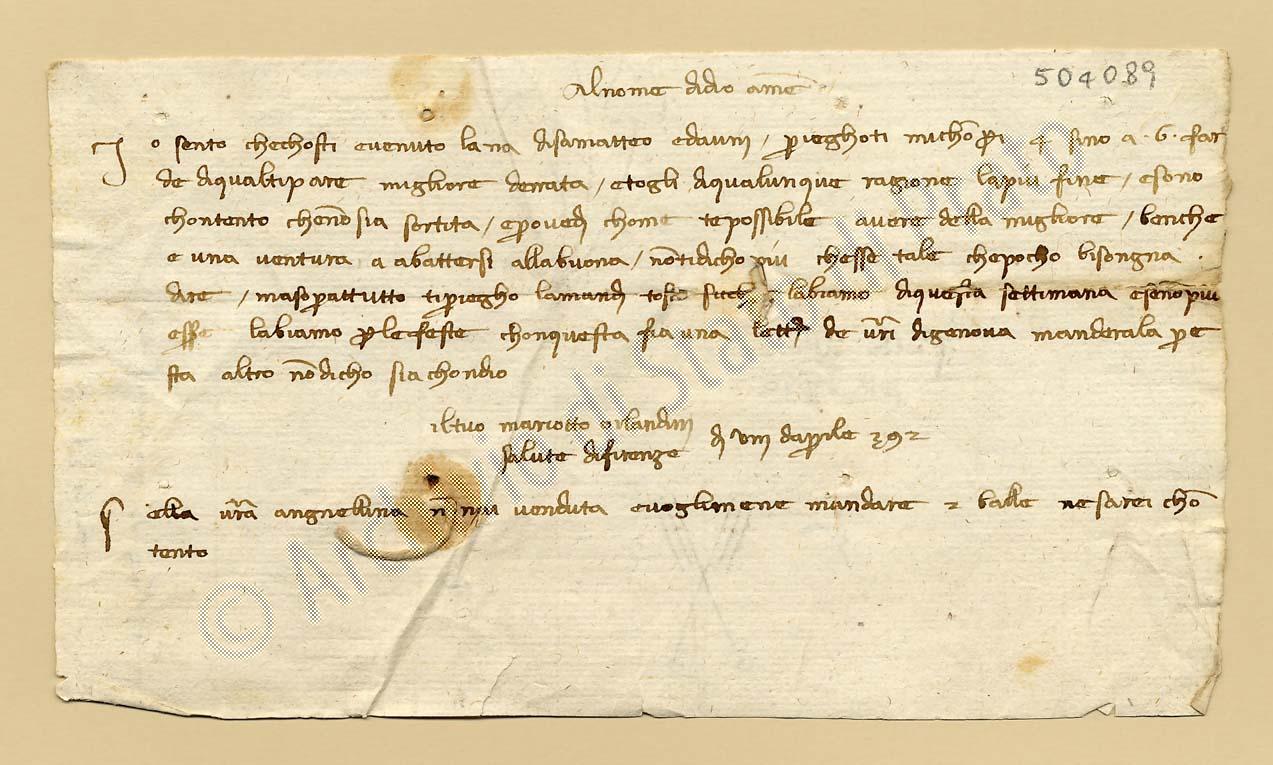 504089
Al nome didio amē
Io sento che chosti e venuto lana disamatteo edaltri / prieghoti mi tho 4 sino a . 6 . far
de diqualtipare migliore derrata / etogli diqualunque ragione lapiu fine / esono
chontento chenō sia sortita / eprovedi chome te possibile avere della migliore / benche
e una ventura a abattersi allabuona / nōtidicho piu chesse tale chepocho bisongna .
dire / masoprattutto tipriegho lamandi tosto sicche labiamo diquesta settimana esenōpiu
esse labiamo ple feste chonquesta fia una lettā de vr̄i digenova manderala p e
sta altro nōdicho sia chondio
iltuo mariotto orlandini
salute difirenze dì viii daprile 392
Sella vrā angnellina nō venduta evoglimene mandare 2 balle ne sarei chō
tento
© Archivio di Stato di Prato